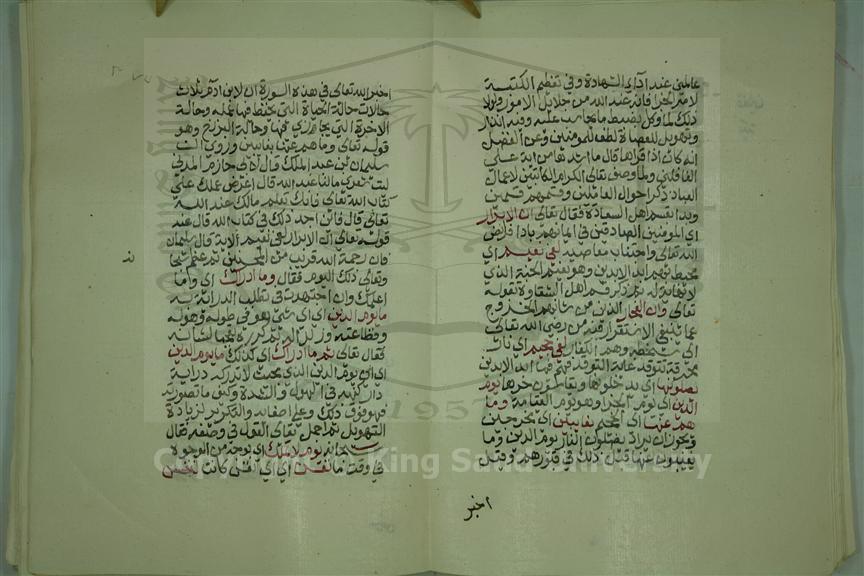 عاملين عند أداء الشهادة وفي تعظيم الكتبة
لامر الجزا فانه عند الله من جلايل الامور ولولا
ذلك لما وكل بضبط ما يحاسب عليه وفيه انذار
وتهويل للعصاة لطف للمومنين وعن الفضيل
انه كان اذا قراها قال ما اشد هامن اية على
الغافلين ولما وصف تعالى الكرام الكاتبين لاعمال
العباد ذكر احوال العاملين وقسمهم قسمين
وبدا بقسم اهل السعادة فقال تعالى ان الابرار
اي المومنين الصادقين في ايمانهم باداء فرائض
الله تعالى واجتناب معاصيه لفي نعيم اي
محيط بهم ابد الابدين وهو نعيم الجنة الذي
لا نهاية له ثم ذكر قسم اهل الشقاوة بقوله
تعالى وان الفجار الذين من شانهم الخروج
عما ينبغي الاستقرار فيه من رضى الله تعالى
الى سخطه وهم الكفار لفي جحيم اي نار
محرقة تتوقد غاية التوقد فهم فيها ابد الابدين
يصلونها اي يدخلونها ويقاسون حرها يوم
الدين اي يوم الجزا وهو يوم القيامة وما
هم عنها اي الجحيم بغائبين اي بمخرجين
ويجوز ان يراد يصلون النار يوم الدين وما
يغيبون عنها قبل ذلك في قبورهم وقيل
اخبر
اخبر الله تعالى في هذه السورة ان لابن ادم ثلاث
حالات حالة الحياة التي يحفظ فيها عمله وحالة
الاخرة التي يجازى فيها وحالة البرزخ وهو
قوله تعالى وما هم عنها بغايبين وروي ان
سليمان بن عبد الملك قال لابي حازم المدني
ليت شعري ما لنا عند الله قال اعرض عملك على
كتاب الله تعالى فانك تعلم مالك عند الله
تعالى قال فاين اجد ذلك في كتاب الله قال عند
قوله تعالى ان الابرار لفي نعيم الاية قال سليمان
فاين رحمة الله قال قريب من المحسنين ثم عظم سبحانه
وتعالى ذلك اليوم فقال وما ادراك اي وما
اعلمك وان اجتهدت في تطلب الدراية به
ما يوم الدين اي اي شي هو في طوله وهوله
وفظاعته وزلزاله ثم كرره تعجيبا لشانه
فقال تعالى ثم ما ادراك اي كذلك ما يوم الدين
اي ان يوم الدين الذي بحيث لا تدرك دراية
دار كنهه في الهول والشدة وكيف ما تصورته
فهو فوق ذلك وعلى اضعافه والتكرير لزيادة
التهويل ثم اجمل تعالى القول في وصفه فقال
سبحانه يوم لا تملك اي بوجه من الوجوه
في وقت ما نفس اي اي نفس كانت لنفس
Copyright © King Saud University
1957